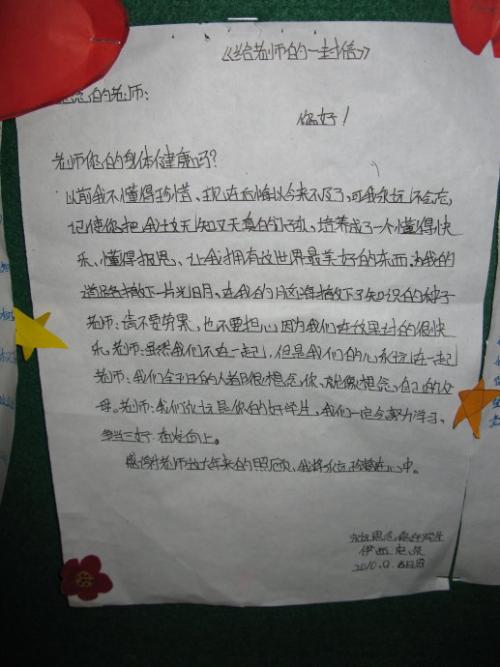 《给老师的一封信》
的老师:
你好!
老师您的身体健康吗?
以前我不懂得珍惜、现在后悔以今来不及了,可我永远不会忘
记使你把我这无知又天真的孩子、培养成了一个懂得快
乐、懂得报恩、让我拥有这世界最美好的东西,为我的
道路播下一片光明、在我的内播下了知识的种子
老师:请不要劳累,也不要担心因为我们在这里过的很快
乐,老师:虽然我们不在一起,但是我们的心永远在一起
老师:我们全班的人都很想念你、就像想念,自己的父
母,老师:我们永远是你的好学生,我们一定会努力学习、
三好 向上。
感谢老师这六年来的照顾、我将永远珍藏在心中。
永远
2010.9